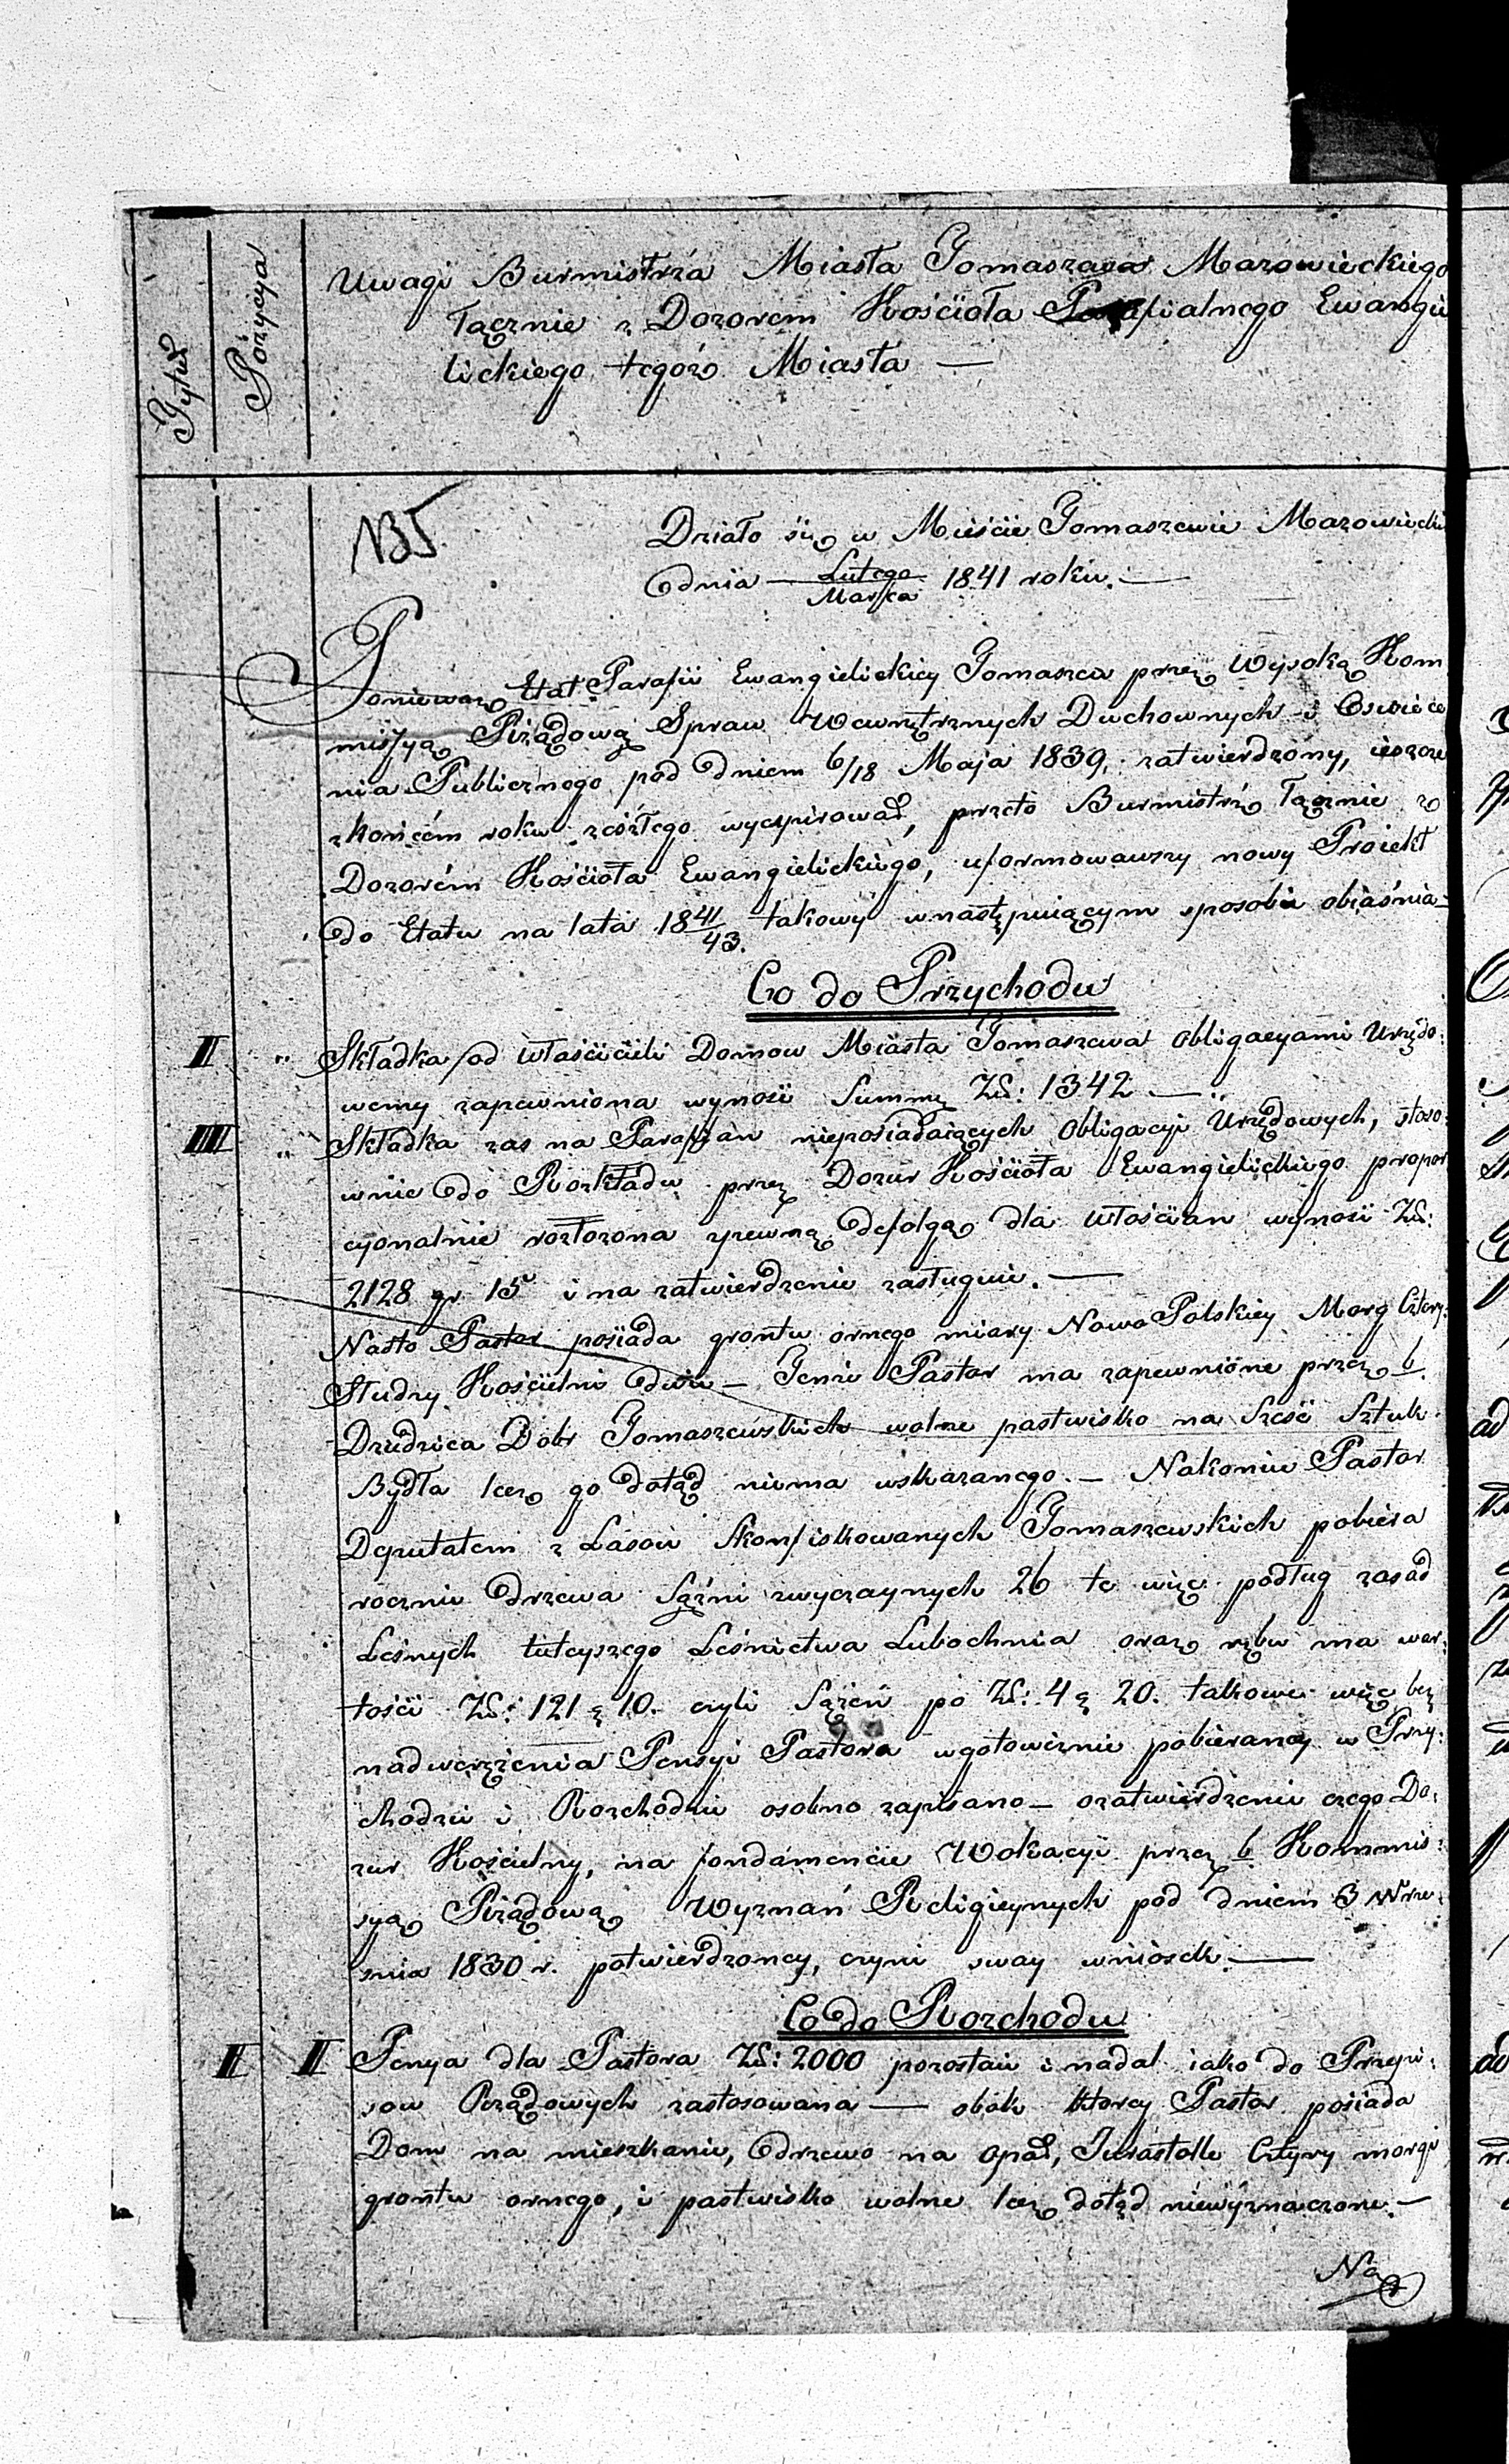 Tytuł
Pozycya
Uwagi Burmistrza Miasta Tomaszowa Mazowieckiego
łącznie z Dozorem Kościoła Parafialnego Ewangie
lickiego tegoż Miasta —
135
Działo się w Mieście Tomaszewie Mazowiecki
dnia — Lutego/Marca 1841 roku. —
Ponieważ Etat Parafii Ewangielickiey Tomaszew przez Wysoką Kom
missyą Rządową Spraw Wewnętrznych Duchownych i Oswiece
nia Publicznego pod dniem 6/18 Maja 1839, zatwierdzony, ieszcze
zkońcem roku zeszłego wyexpirował, przeto Burmistrz łącznie z
Dozorem Kościoła Ewangielickiego, uformowawszy nowy Proiekt
do Etatu na lata 1841/43. takowy wnastępuiącym sposobie obiaśnia—
Co do Przychodu
II „ Składka od właścicieli Domow Miasta Tomaszewa obligacyami Urzędo:
wemy zapewniona wynosi Summę Zł: 1342 — „
III „ Składka zas na Parafian nieposiadaiących Obligacyi Urzędowych, stoso:
wnie do Rozkładu przez Dozur Kościoła Ewangielickiego propor
cyonalnie rozłozona zpewną defolgą dla włościan wynosi Zł:
2128 gr 15 i na zatwierdzenie zasługuie. —
Nadto Pastor posiada gruntu ornego miary Nowo Polskiey Morg Cztery:
Sludzy Kościelni dwie — Tenże Pastor ma zapewnione przez b.
Dziedzica Dobr Tomaszewskich wolne pastwisko na Szesc Sztuk
Bydła lecz go dotąd niema wskazanego. — Nakoniec Pastor
Deputatem z Lasow Skonfiskowanych Tomaszewskich pobiera
rocznie drzewa Sążni zwyczaynych 26 te więc podług zasad
Leśnych tuteyszego Leśnictwa Lubochnia oraz rębu ma war:
tości Zł: 121 g 10. czyli Sążeń po Zł: 4 g 20. takowe więc bez
nadwerzężenia Pensyi Pastora wgotowiznie pobieraney w Przy:
chodzie i Rozchodzie osobno zapisano — ozatwierdzenie czego Do:
zur Kościelny, na fondamencie Wokacyi przez b Kommis:
syą Rządową Wyznań Religieynych pod dniem 3 Wrze:
snia 1830 r. potwierdzoney, czyni sway wniosek. —
Co do Rozchodu
II II Pensya dla Pastora Zł: 2000 pozostaie i nadal iako do Przepi:
sow Rządowych zastosowana — obok ktorey Pastor posiada
Dom na mieszkanie, drzewo na opał, Jurastolle Cztyry morgi
gruntu ornego, i pastwisko wolne lecz dotąd niewyznaczone. —
Na